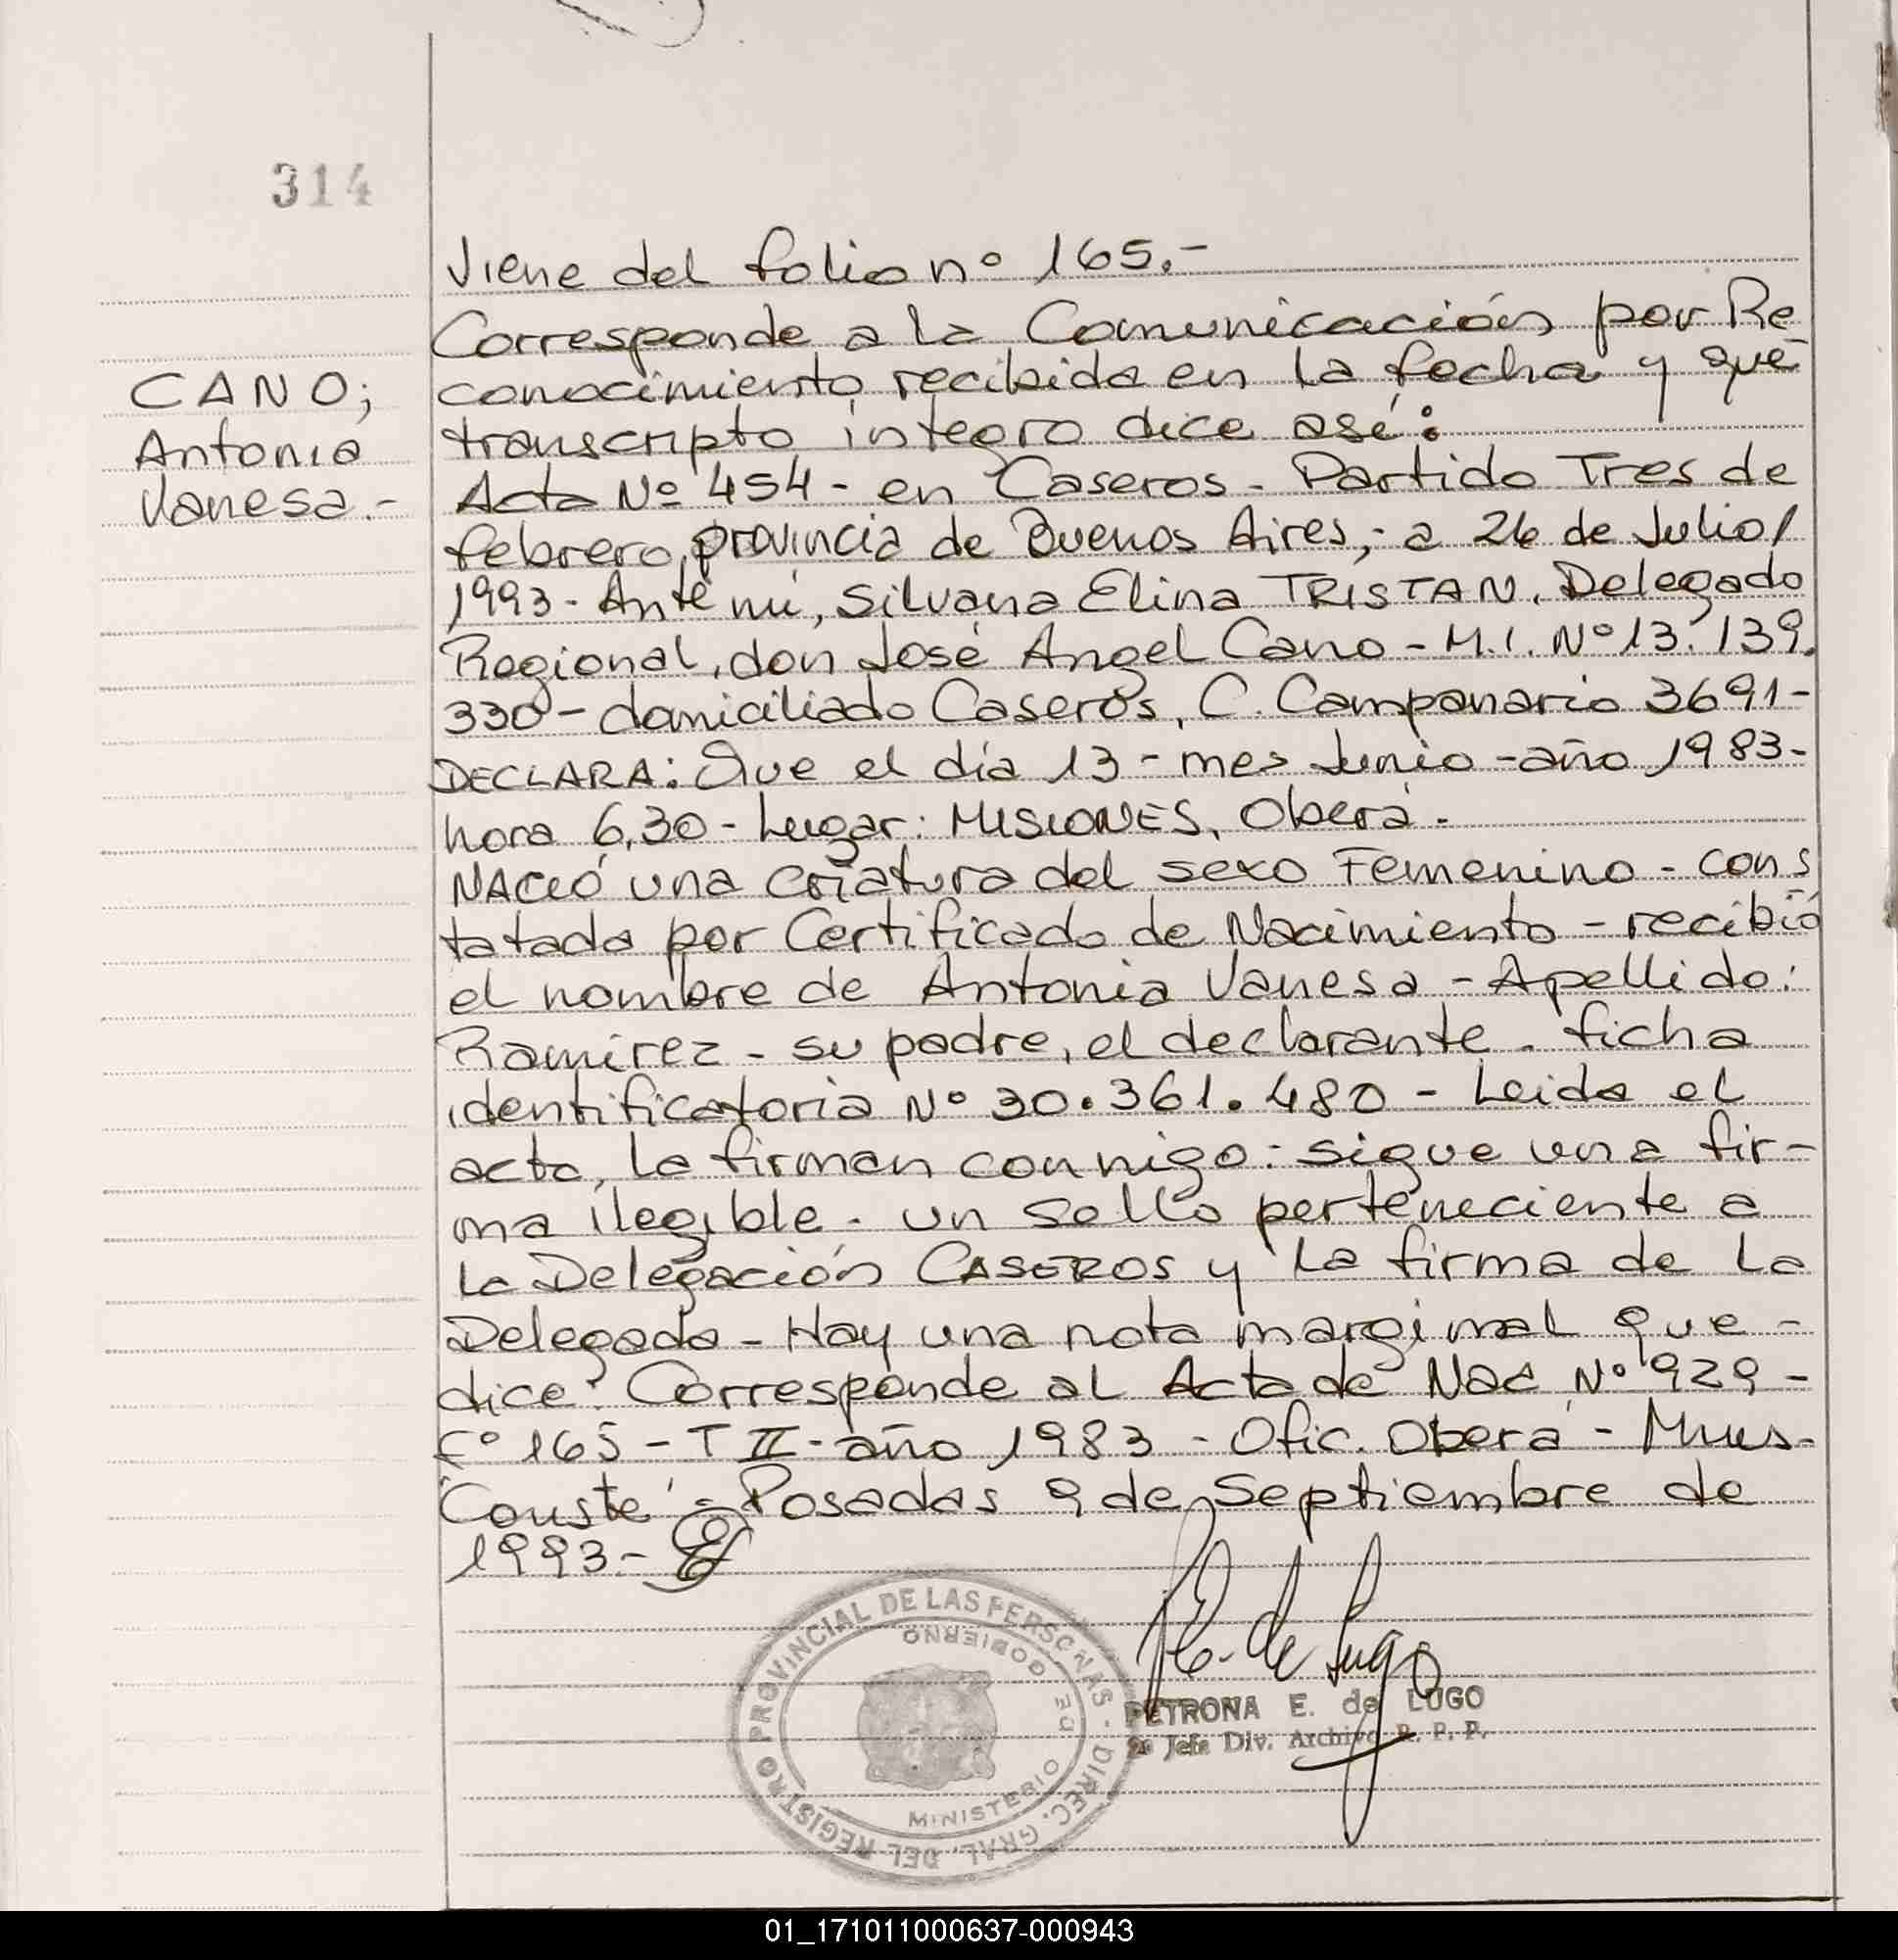 314
CANO;
Antonia
Vanesa.-
Viene del folio nº 165.-
Corresponde a la Comunicación por Re
conocimiento recibida en la fecha y que
transcripto íntegro dice así:
Acta Nº 454 - en Caseros - Partido Tres de
febrero, provincia de Buenos Aires, - a 26 de Julio/
1993 - Ante mí, Silvana Elina TRISTAN. Delegado
Regional, don José Angel Cano - M.I. Nº 13.139.
330 - domiciliado Caseros, C. Campanario 3691-
DECLARA: Que el día 13 - mes Junio - año 1983-
hora 6,30 - Lugar: MISIONES, Oberá -
NACIÓ una criatura del sexo Femenino - cons
tatada por Certificado de Nacimiento - recibió
el nombre de Antonia Vanesa - Apellido:
Ramirez - su padre, el declarante - ficha
identificatoria Nº 30.361.480 - Leida el
acta, la firman conmigo: sigue una fir-
ma ilegible. un sello perteneciente a
la Delegación CASEROS y la firma de la
Delegada - Hay una nota marginal que -
dice: Corresponde al Acta de Nac Nº 929 -
Fº 165 - T II - año 1983 - Ofic. Oberá - Mnes-
Conste - Posadas 9 de Septiembre de
1993.-
P.E. de Lugo
PETRONA E. de LUGO
2ª Jefa Div. Archivo R. P. P.
DIREC. GRAL. DEL REGISTRO PROVINCIAL DE LAS PERSONAS -
MINISTERIO DE GOBIERNO
01_171011000637-000943